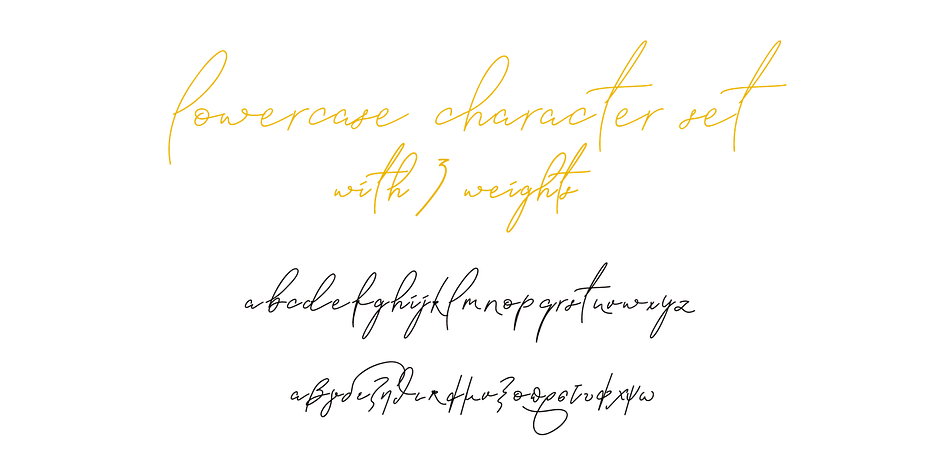 lowercase character set
with 3 weights
abcdefghijklmnopqrstuvwxyz
αβγδεζηθικλμνξοπρσςτυφχψω